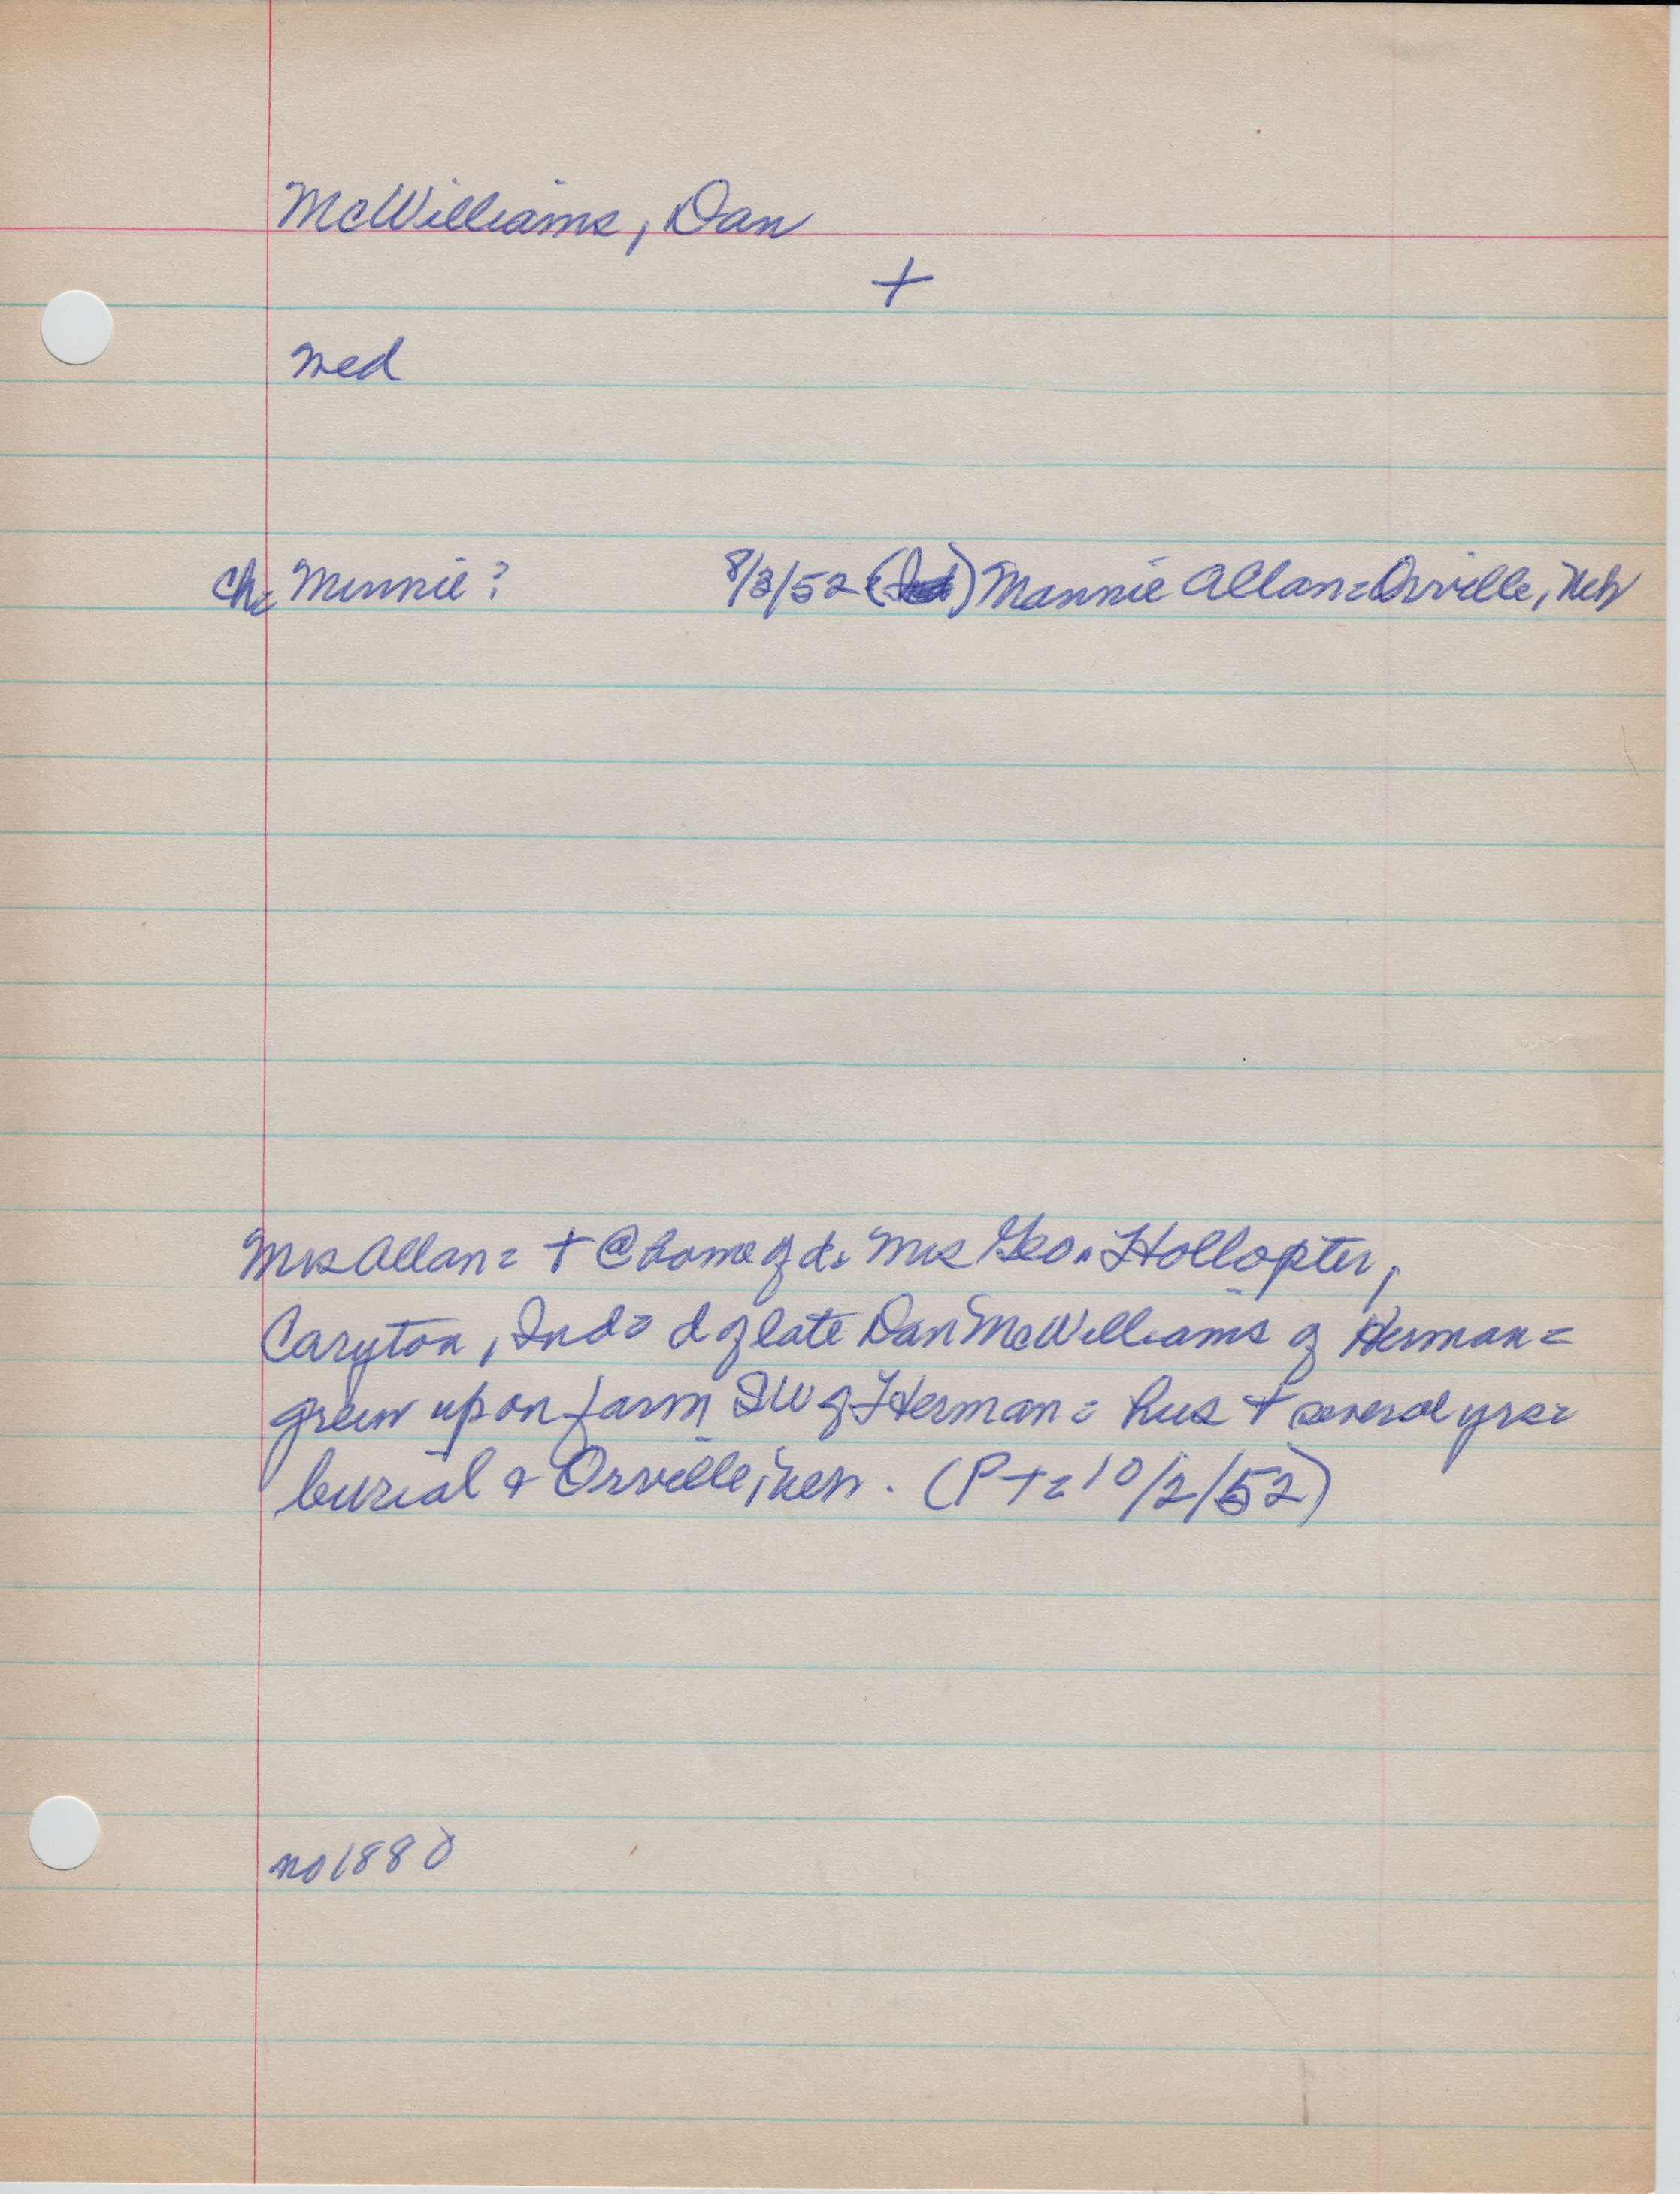 McWilliams, Dan
+
med
ch: Minnie? 8/3/52 ( ) Mannie Allan = Orville, Neb
Mrs Allan = + @ home of d: Mrs Geo. Hollopter,
Caryton, Ind = d of late Dan McWilliams of Herman =
grew up on farm SW of Herman = hus + several yrs =
burial @ Orville, neb. (P + = 10/2/52)
no 1880